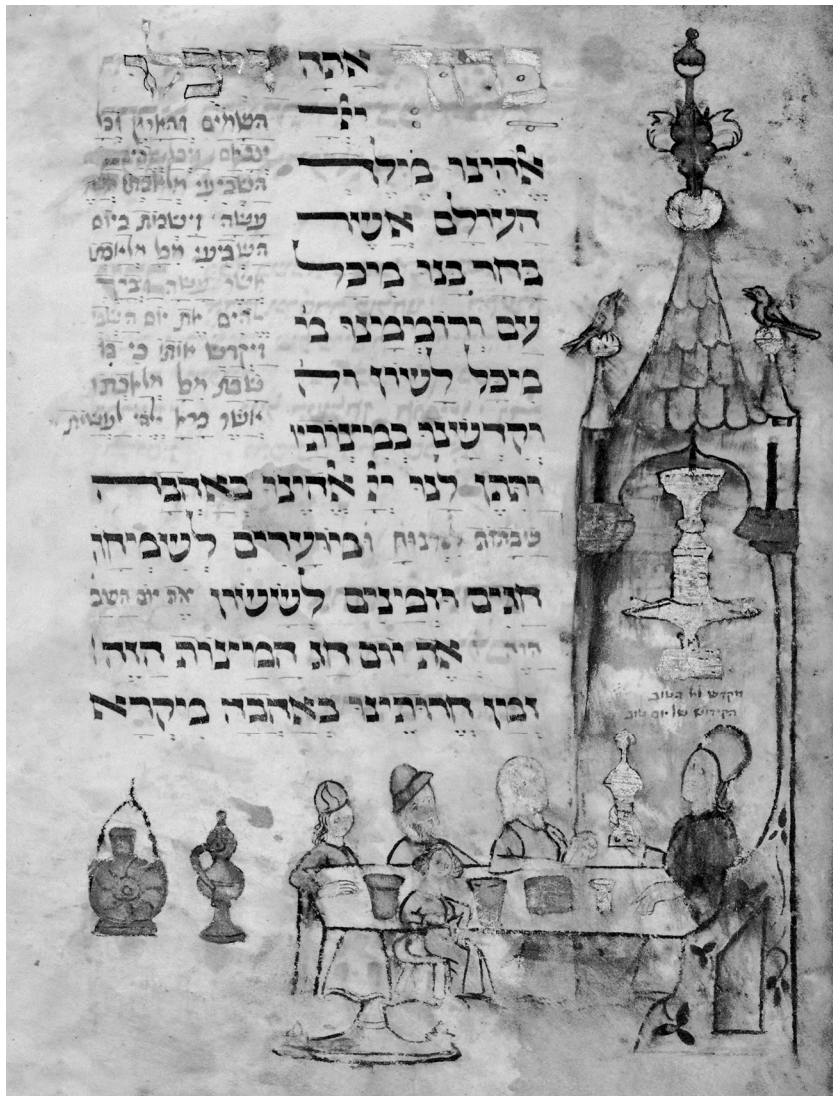 ברוך אתה
ייי
אלהינו מילך
העולם אשר
בחר בנו מיכל
עם ורוממינו
מיכל לשון
וקדשינו במיצותיו
ותתן לנו ייי אלהינו באהבה
שבתות למנוחה ומועדים לשמיחה
חגים וזמינים לששון את יום השבת
הזה ו את יום חג המיצות הזה
זמן חרותינו באהבה מיקרא
השמים והארץ וכל
צבאם ויכל
השביעי מלאכתו
עשה וישבות ביום
השביעי מכל מלאכתו
אשר עשה ויברך
אלהים את יום השבי
ויקדש אותו כי בו
שבת מכל מלאכתו
אשר ברא אלהים לעשות
הקידוש של יום טוב